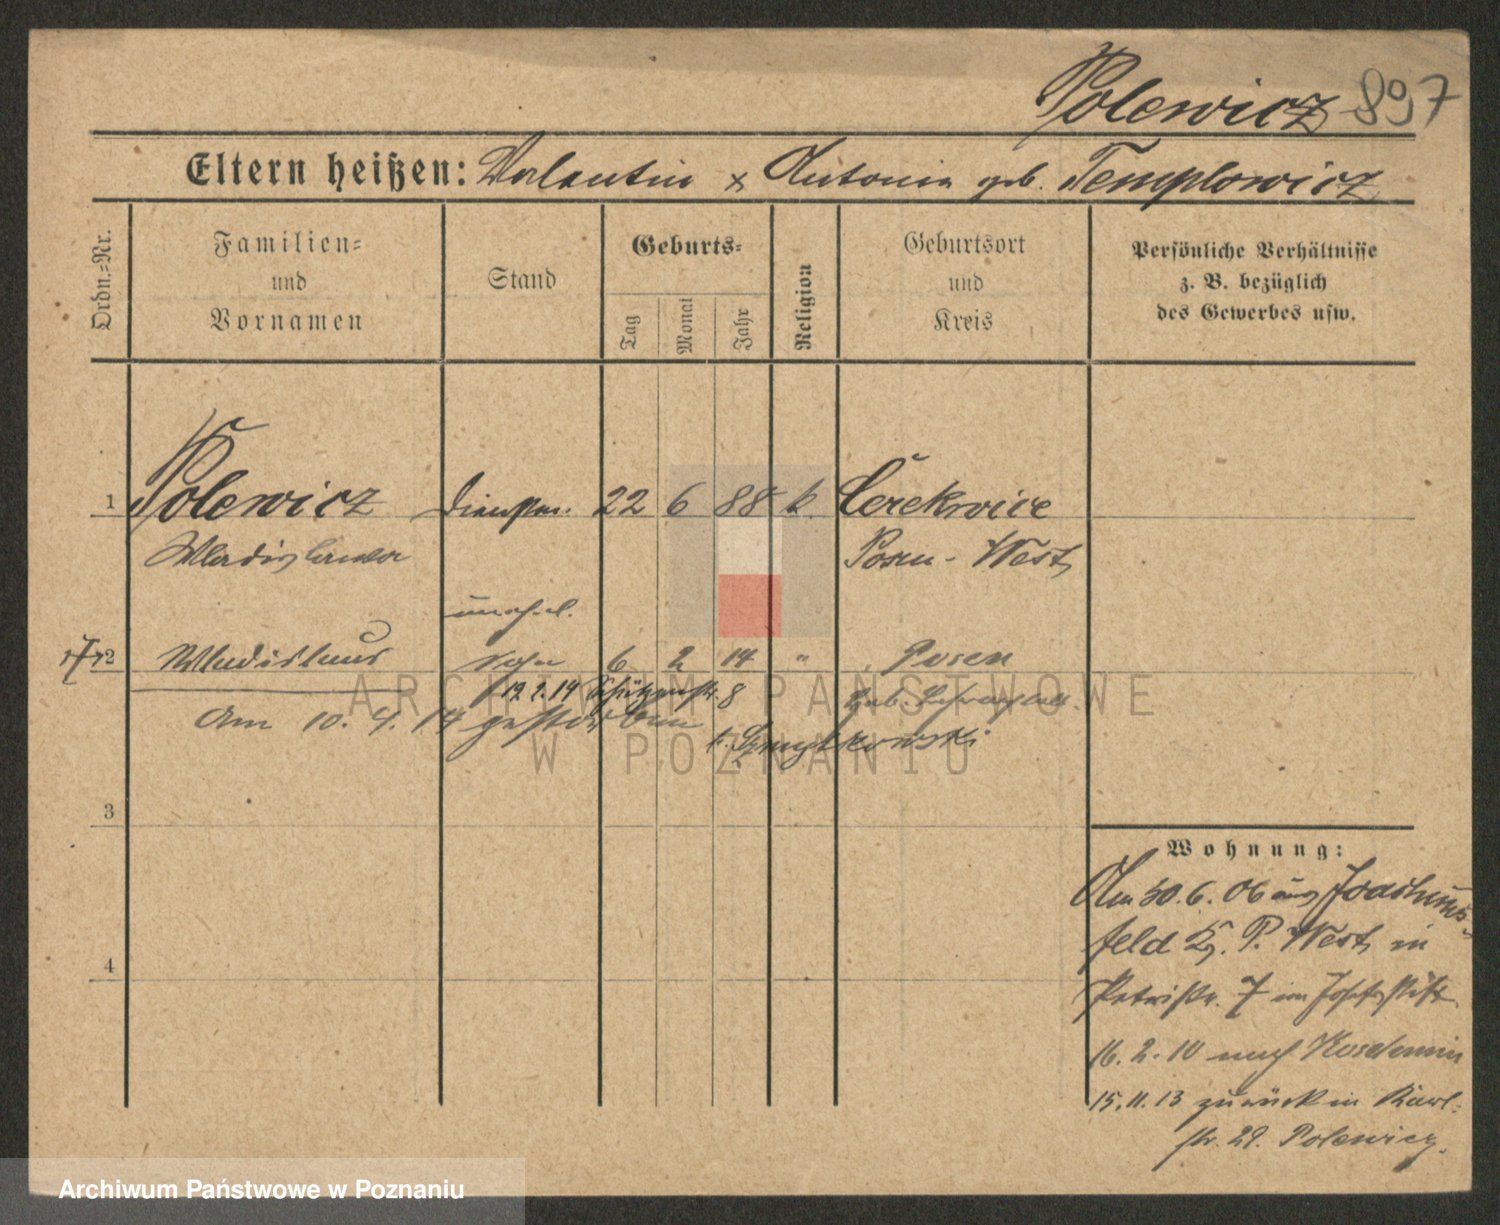 Polewicz 897
Eltern heißen: Valentin x Antonie geb. Templowicz
Ordn.-Nr.
Familien- und Vornamen
Stand
Geburts-
Tag
Monat
Jahr
Religion
Geburtsort und Kreis
Persönliche Verhältnisse z. B. bezüglich des Gewerbes usw.
1 Polewicz Dienstm. 22 6 88 k. Cerekwice
Wladislawa Posen-West
unehel.
2 Wladislaus Sohn 6 2 14 " Posen
19.2.14 Schützenstr. 8
Am 10. 4. 14 gestorben
3
4
Wohnung:
Am 30.6.06 aus Joachims-
feld Kr. P. West in
Petristr. 7 im Josefstift
16.2.10 nach Koschmin
15.11.13 zurück in Karl-
str. 29. Polewicz.
ARCHIWUM PAŃSTWOWE
W POZNANIU
Archiwum Państwowe w Poznaniu